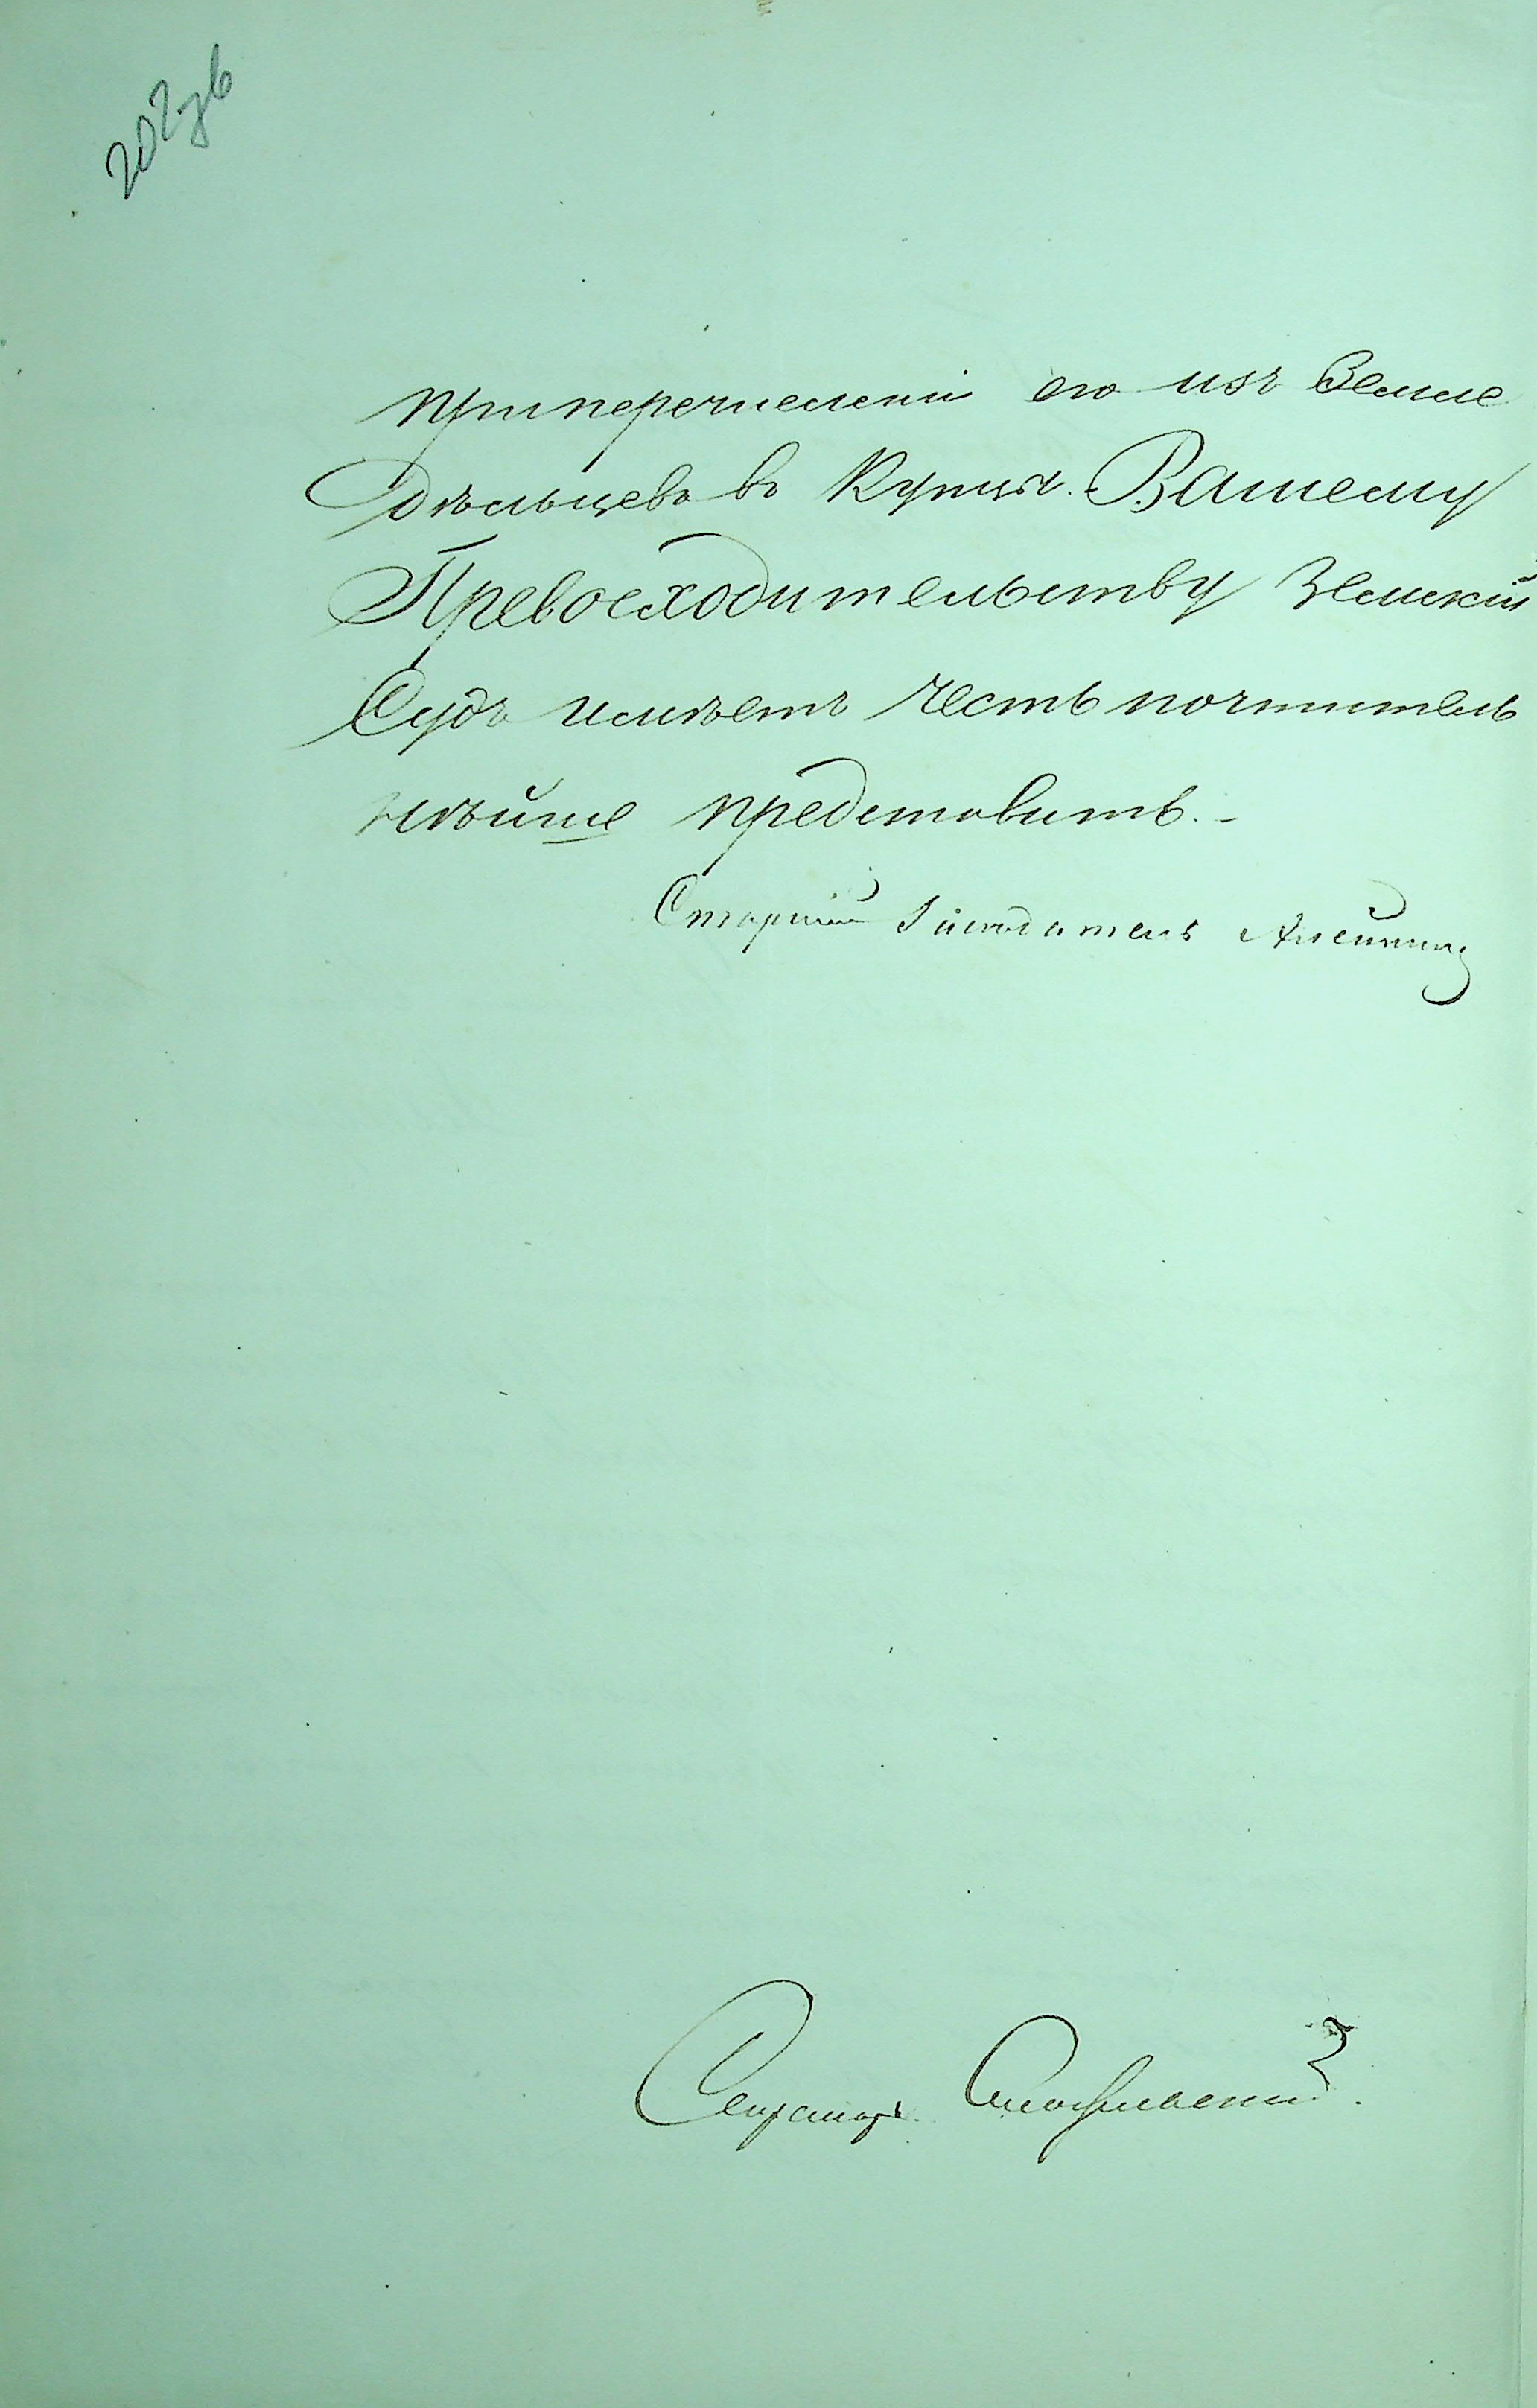 202 об
При перечисленіи его изъ Земле
дѣльцевъ въ Купцы. Вашему
Превосходительству Земскій
Судъ имѣетъ честь почтитель
нѣйше представить.
Старшій Засѣдатель
Секретарь